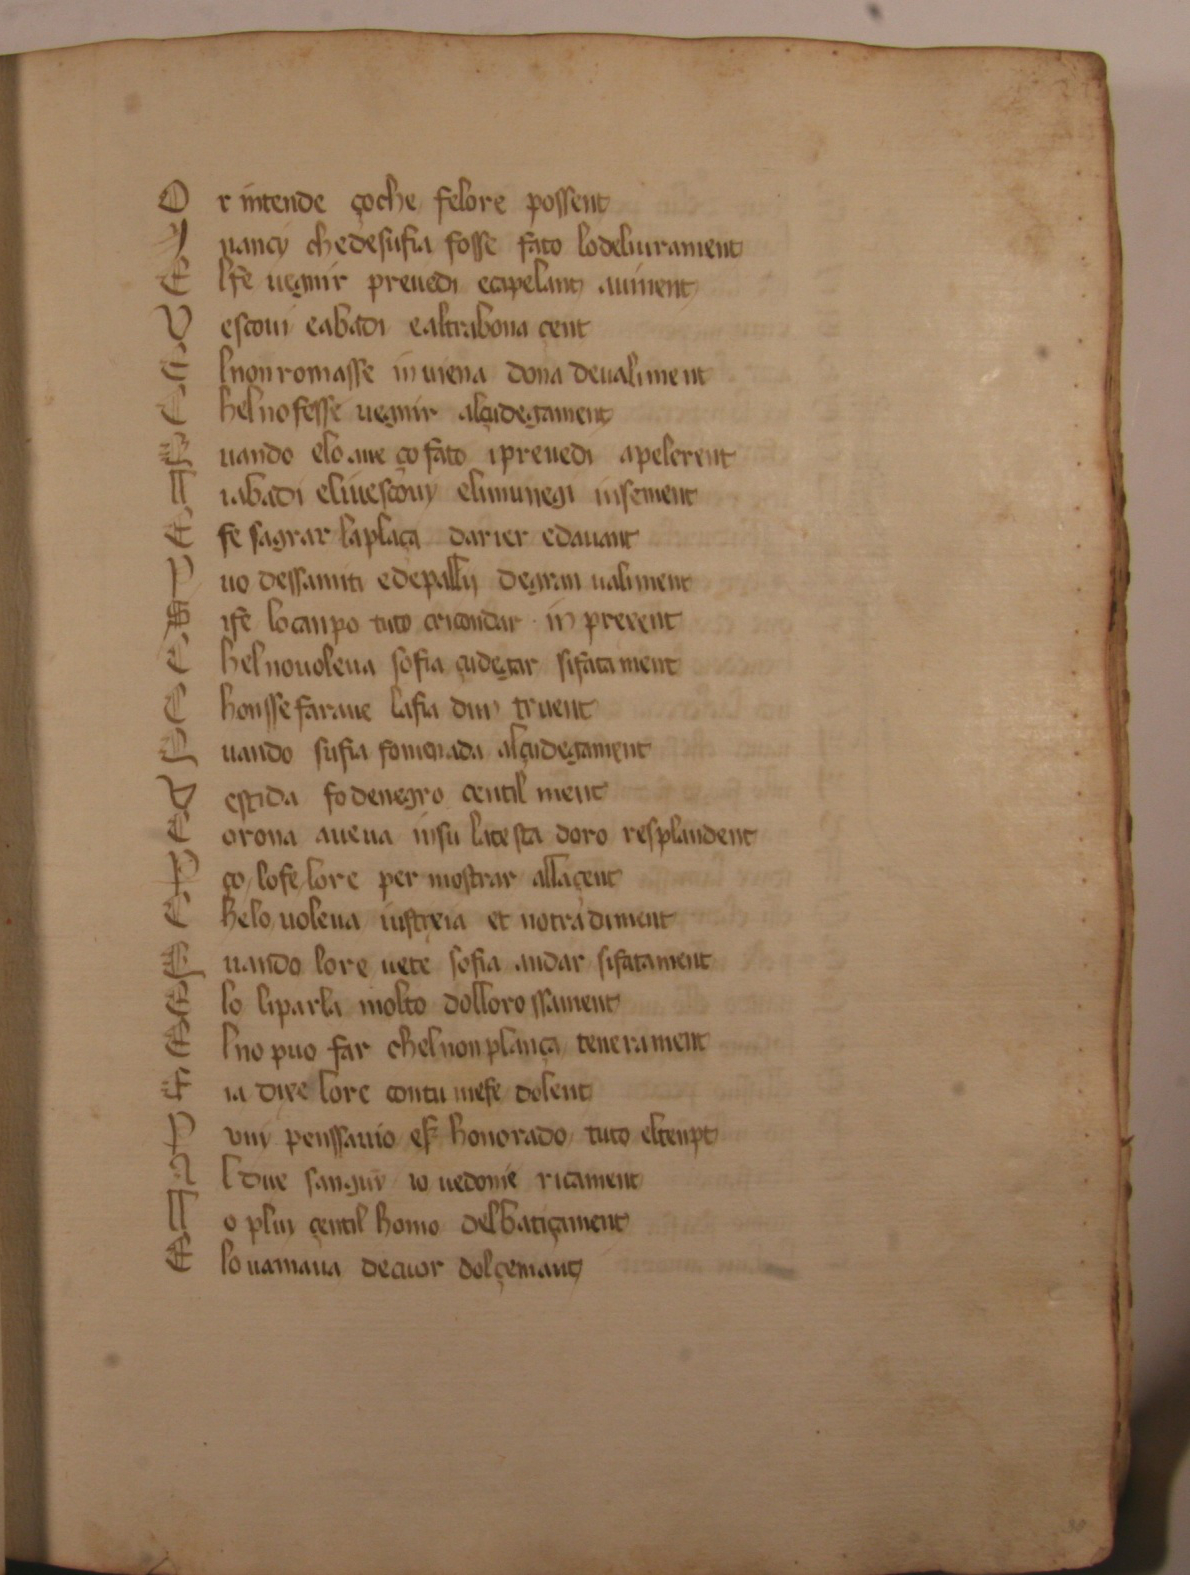 O r intende çoche felore possent
I nancy chedesufia fosse fato lodeliurament
E lfe uegnir preuedi ecapelant auinent
V escoui eabadi ealtrabona çent
E lnonromasse inuiena dona deualiment
C helnofesse uegnir alçudegament
Q uando elo aue ço fato ipreuedi apelerent
L iabadi eliuescouy elimunegi insement
E fe sagrar laplaça darier edauant
P uo dessamiti edepallij degran ualiment
S ife locanpo tuto cricondar in prexent
C helnouoleua sofia çudegar sifatament
C honssefaraue lafia dun truent
Q uando sufia fomenada alçudegament
V estida fo denegro çentil ment
C orona aueua insu latesta doro resplandent
P ço lofe lore per mostrar allaçent
C helo uoleua iustixia et notradiment
Q uando lore uete sofia andar sifatament
E lo liparla molto dollorossament
E lno puo far chelnonplança tenerament
F ia dixe lore contu mefe dolent
P uni penssauio esser honorado tuto eltenpt
A l due sanguy io uedonie ricament
L o plui çentil homo delbatiçament
E louamaua decuor dolçemant